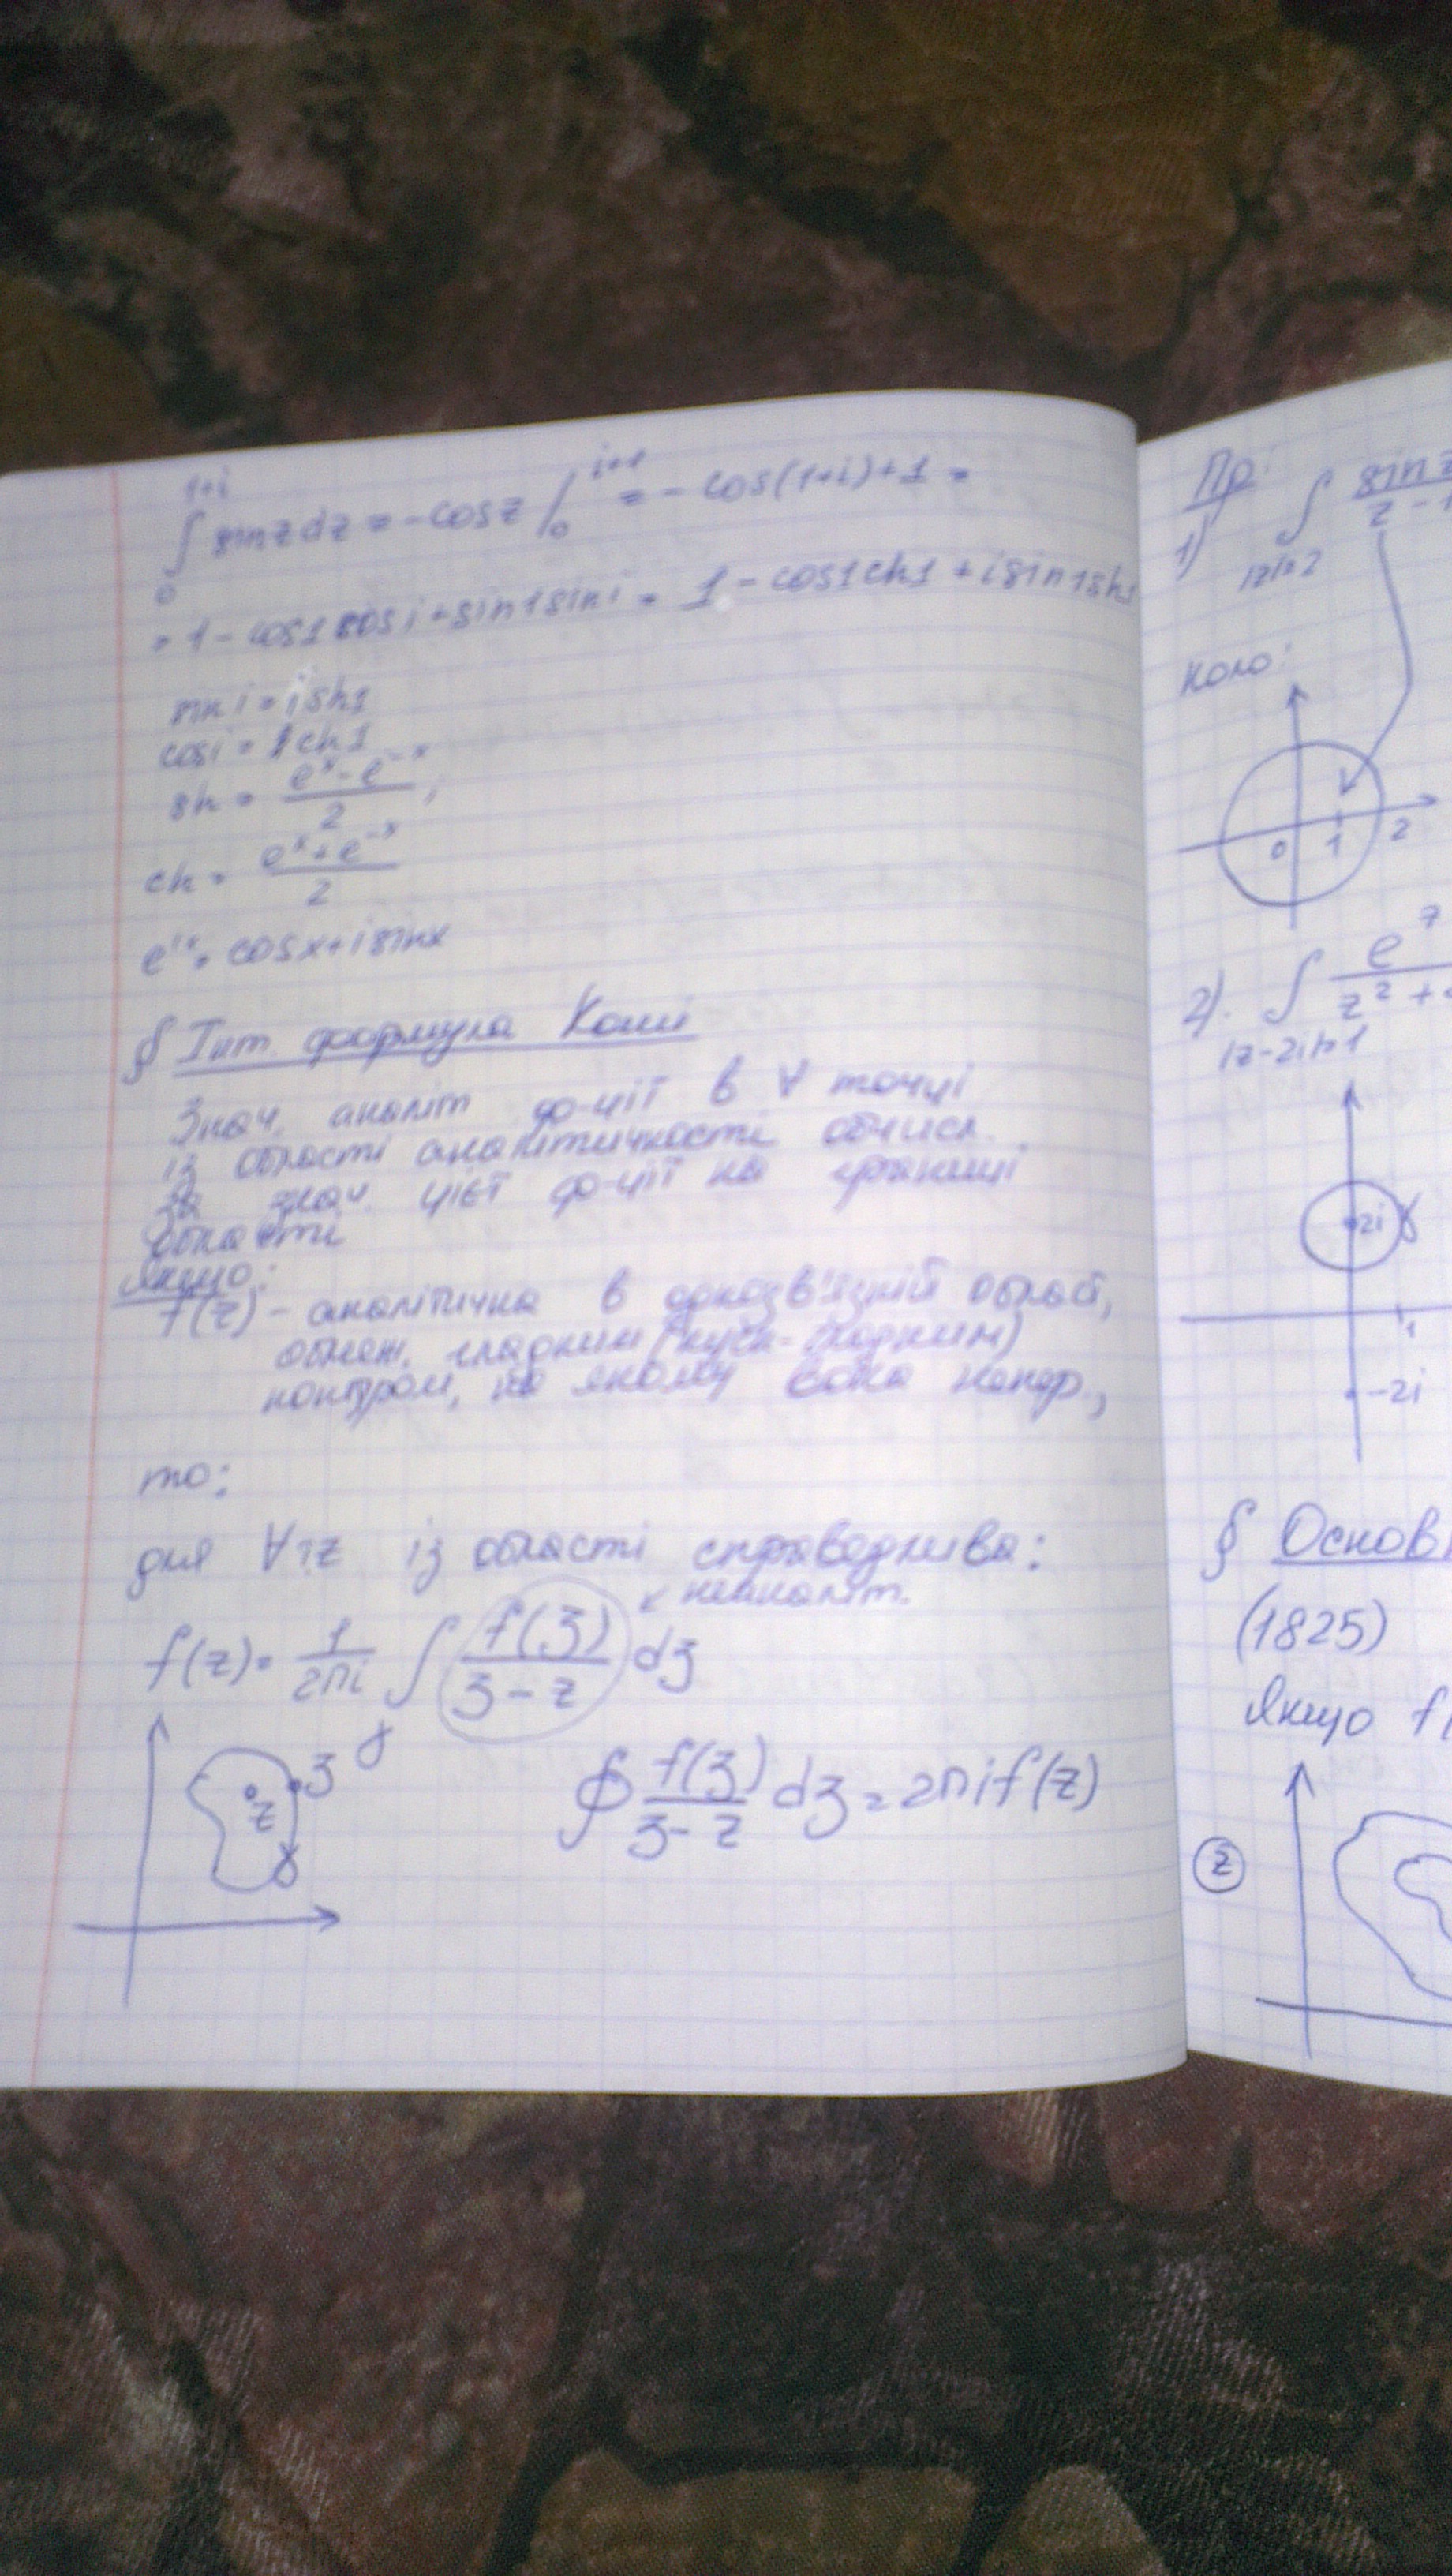 1+i
∫ sinz dz = -cosz |₀ⁱ⁺¹ = -cos(1+i)+1 =
0
= 1 - cos1 cos i + sin1 sin i = 1 - cos1 ch1 + i sin1 sh1
sin i = i sh1
cos i = ch1
sh = (eˣ - e⁻ˣ)/2 ;
ch = (eˣ + e⁻ˣ)/2
eⁱˣ = cosx + i sinx
§ Інт. формула Коші
Знач. аналіт ф-ції в ∀ точці
із області аналітичності обчисл.
за знач. цієї ф-ції на границі
області
Якщо:
f(z) - аналітична в однозв'язній області,
обмеж. гладким (куск-гладким)
контуром, на якому вона непер.,
то:
для ∀ т.z із області справедлива:
неаналіт.
f(z) = 1/(2πi) ∫ f(ζ)/(ζ - z) dζ
γ
ζ
z
γ
∮ f(ζ)/(ζ - z) dζ = 2πi f(z)
Пр:
1) ∫ sinz/(z - 1
|z|=2
коло:
0 1 2
2). ∫ e^z/(z² +
|z-2i|=1
2i γ
1
-2i
§ Основ
(1825)
Якщо f(
z